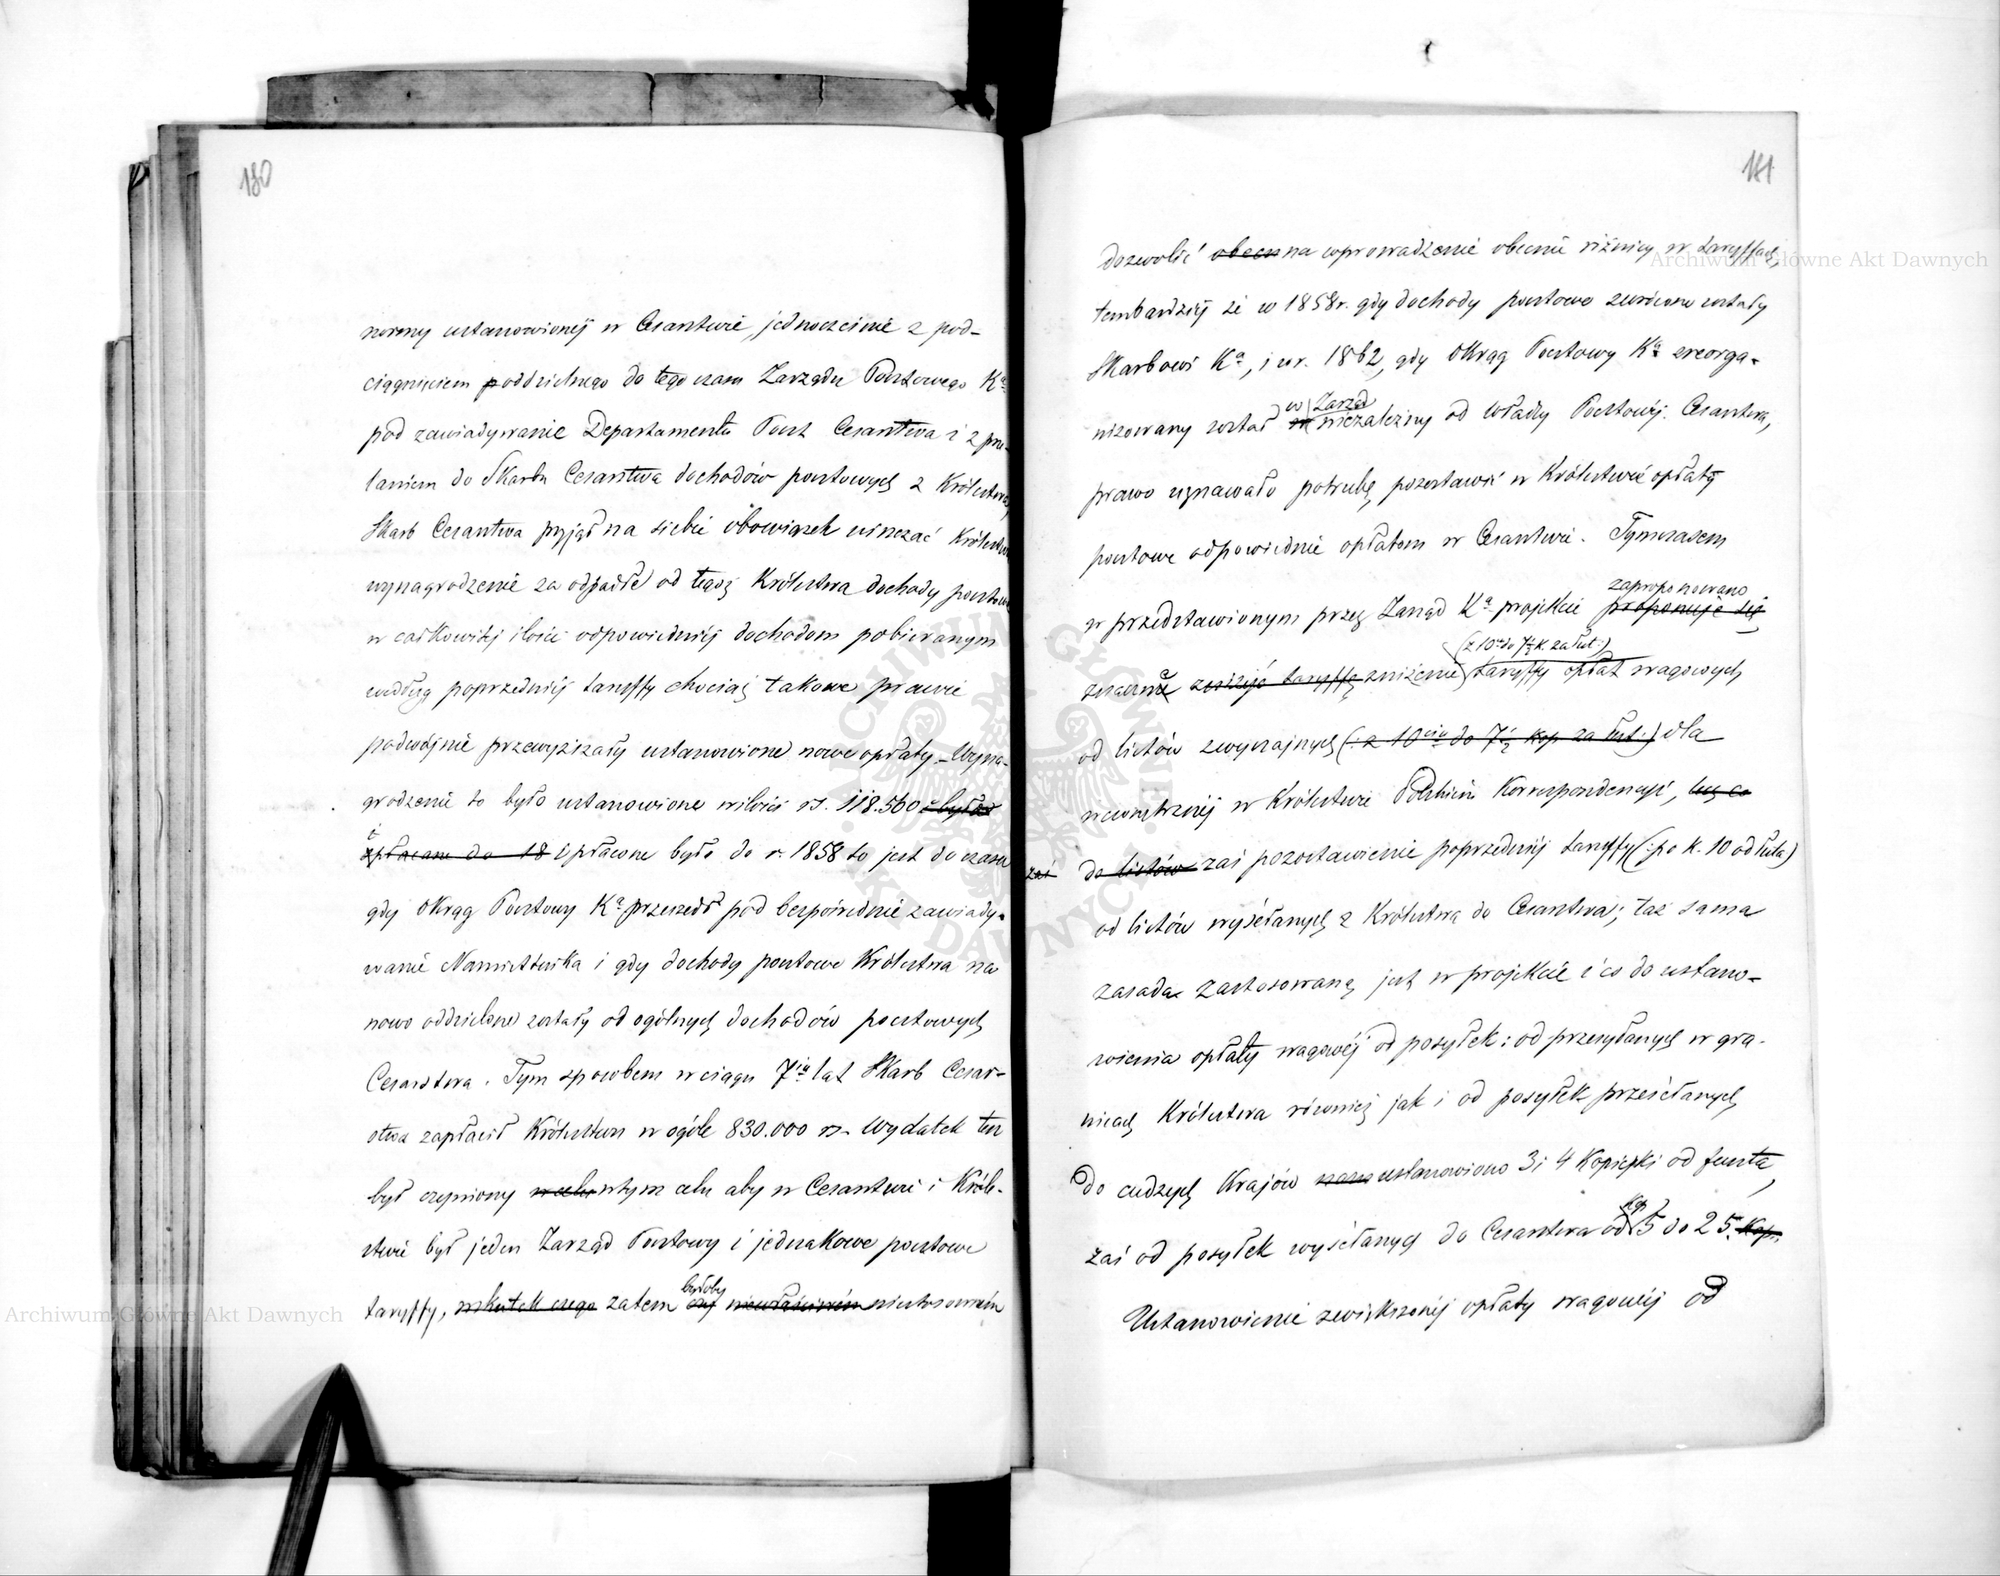 180
normy ustanowionéj w Cesarstwie, jednocześnie z pod-
ciągnięciem oddzielnego do tego czasu Zarządu Pocztowego Kª
pod zawiadywanie Departamentu Poczt Cesarstwa i z prze-
laniem do Skarbu Cesarstwa dochodów pocztowych z Królestwa,
Skarb Cesarstwa przyjął na siebie obowiązek uiszczać Królestwu
wynagrodzenie za odpadłe od tegoż Królestwa dochody pocztowe
w całkowitéj ilości odpowiedniéj dochodom pobieranym
według poprzedniéj taryffy chociaż takowe prawie
podwójnie przewyższały ustanowione nowe opłaty. Wyna-
grodzenie to było ustanowione w ilości rs. 118.560 i było
opłacane do 18 i płacone było do r. 1858 to jest do czasu
gdy Okrąg Pocztowy Kª przeszedł pod bezpośrednie zawiady-
wanie Namiestnika i gdy dochody pocztowe Królestwa na
nowo oddzielone zostały od ogólnych dochodów pocztowych
Cesarstwa. Tym sposobem w ciągu 7iu lat Skarb Cesar-
stwa zapłacił Królestwu w ogóle 830.000 rs. Wydatek ten
był czyniony w celu w tym celu aby w Cesarstwie i Króle-
stwie był jeden Zarząd Pocztowy i jednakowe pocztowe
taryffy, wskutek czego zatem byłoby niewłaściwém niestosowném
181
dozwolić obecn na wprowadzenie obecnie różnicy w taryffach,
tembardziéj że w 1858 r. gdy dochody pocztowe zwrócone zostały
Skarbowi Kª, i w r. 1862, gdy Okrąg Pocztowy Kª zreorga-
nizowany został w Zarząd niezależny od władzy Pocztowéj Cesarstwa,
prawo uznawało potrzebę pozostawić w Królestwie opłaty
pocztowe odpowiednie opłatom w Cesarstwie. Tymczasem
w przedstawionym przez Zarząd Kª projekcie proponuje się
zaproponowano
(z 10u do 7½ k. za łut:)
znaczne zniżenie taryffy opłat wagowych
od listów zwyczajnych (: z 10ciu do 7½ kop za łut :) dla
wewnętrznéj w Królestwie Polskiém Korrespondencyi, lecz co
zaś do listów zaś pozostawienie poprzedniéj taryffy (: po k. 10 od łuta)
od listów wysełanych z Królestwa do Cesarstwa; taż sama
zasada zastosowaną jest w projekcie i co do ustano-
wienia opłaty wagowéj od posyłek: od przesyłanych w gra-
nicach Królestwa również jak i od posyłek przesełanych
do cudzych Krajów ustanowiono 3 i 4 Kopiejki od funta,
zaś od posyłek wysełanych do Cesarstwa od kop 5 do 25 kop.
Ustanowienie zwiększonéj opłaty wagowéj od
Archiwum Główne Akt Dawnych
Archiwum Główne Akt Dawnych
ARCHIWUM GŁÓWNE AKT DAWNYCH